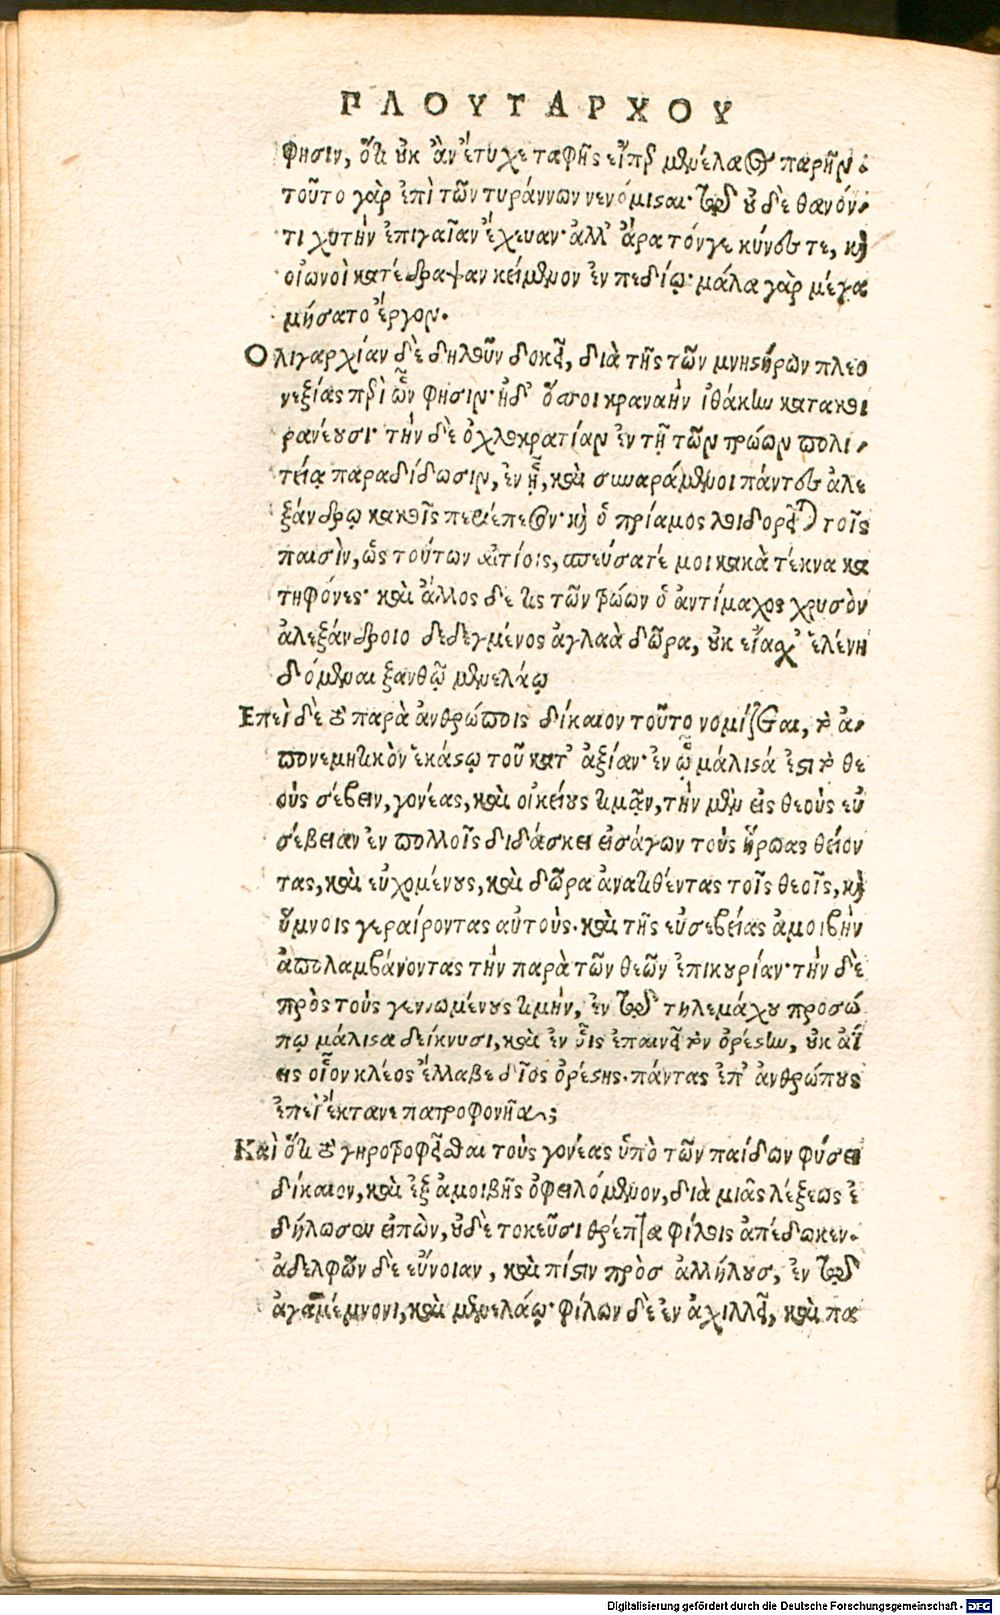 ΠΛΟΥΤΑΡΧΟΥ
φησιν, ὅτι οὐκ ἂν ἔτυχε ταφῆς εἴπερ μενέλαος παρῆν.
τοῦτο γὰρ ἐπὶ τῶν τυράννων νενόμισαι· τῷ δ οὐδὲ θανόν-
τι χυτὴν ἐπιγαῖαν ἔχευαν· ἀλλ' ἄρα τόνγε κύνες τε, καὶ
οἰωνοὶ κατέδραψαν κείμενον ἐν πεδίῳ· μάλα γὰρ μέγα
μήσατο ἔργον.
Ολιγαρχίαν δὲ δηλοῦν δοκεῖ, διὰ τῆς τῶν μνηστήρων πλεο
νεξίας περὶ ὧν φησιν· ἠδ' ὅσσοι κραναὴν ἰθάκην κατακοι
ρανέουσι· τὴν δὲ ὀχλοκρατίαν ἐν τῇ τῶν τρώων πολι-
τείᾳ παραδίδωσιν, ἐν ᾗ, καὶ συναράμενοι πάντες ἀλε
ξάνδρῳ κακοῖς περιέπεσον· καὶ ὁ πρίαμος λοιδορεῖται τοῖς
παισὶν, ὡς τούτων αἰτίοις, σπεύσατέ μοι κακὰ τέκνα κα
τηφόνες· καὶ ἄλλος δέ τις τῶν τρώων ὁ ἀντίμαχος χρυσὸν
ἀλεξάνδροιο δεδεγμένος ἀγλαὰ δῶρα, οὐκ εἴασχ' ἑλένην
δόμεναι ξανθῷ μενελάῳ
Επεὶ δὲ καὶ παρὰ ἀνθρώποις δίκαιον τοῦτο νομίζεται, τὸ ἀ-
πονεμητικὸν ἑκάστῳ τοῦ κατ' ἀξίαν· ἐν ᾧ μάλιστά ἐστι τὸ θε
οὺς σέβειν, γονέας, καὶ οἰκείους τιμᾷν, τὴν μὲν εἰς θεοὺς εὐ
σέβειαν ἐν πολλοῖς διδάσκει εἰσάγων τοὺς ἥρωας θύον
τας, καὶ εὐχομένους, καὶ δῶρα ἀνατιθέντας τοῖς θεοῖς, καὶ
ὕμνοις γεραίροντας αὐτοὺς· καὶ τῆς εὐσεβείας ἀμοιβὴν
ἀπολαμβάνοντας τὴν παρὰ τῶν θεῶν ἐπικουρίαν· τὴν δὲ
πρὸς τοὺς γεννωμένους τιμὴν, ἐν τῷ τηλεμάχου προσώ
πῳ μάλιστα δείκνυσι, καὶ ἐν οἷς ἐπαινεῖ τὸν ὀρέστην, οὐκ ἀΐ
εις οἷον κλέος ἔλλαβε δῖος ὀρέστης. πάντας ἐπ' ἀνθρώπους
ἐπεὶ ἔκτανε πατροφονῆα;
Καὶ ὅτι καὶ γηροτροφεῖσθαι τοὺς γονέας ὑπὸ τῶν παίδων φύσει
δίκαιον, καὶ ἐξ ἀμοιβῆς ὀφειλόμενον, διὰ μιᾶς λέξεως ἐ
δήλωσεν εἰπὼν, οὐδὲ τοκεῦσι θρέπτρα φίλοις ἀπέδωκεν.
ἀδελφῶν δὲ εὔνοιαν, καὶ πίστιν πρὸσ ἀλλήλουσ, ἐν τῷ
ἀγαμέμνονι, καὶ μενελάῳ· φίλων δὲ ἐν ἀχιλλεῖ, καὶ πα
Digitalisierung gefördert durch die Deutsche Forschungsgemeinschaft - DFG